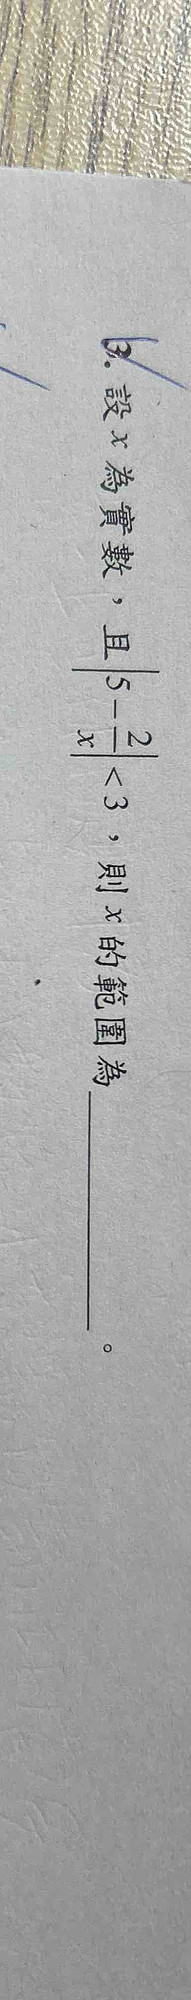 3. 設 x 為實數，且 |5 − 2/x| < 3，則 x 的範圍為＿＿＿＿＿＿。